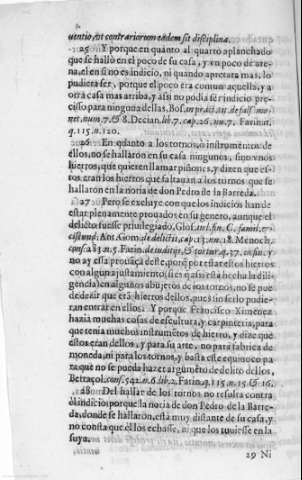 uentio, ut contrariorum eadem sit disciplina.
25 Y porque en quanto al quarto aplanchado
que se halló en el poco de su casa, y en poco de are-
na, el en si no es indicio, ni quando apretara mas, lo
pudiera ser, porque el poço era comun aquella, y a
otra casa mas arriba, y assi no podia ser indicio pre-
cisso para ninguna dellas. Bos. de fals. mo-
net. num. 7. & 8. Decian. lib. 7. cap. 26. nu. 7. Farin.
q. 115. n. 120.
26 En quanto a los tornos, ó instrumentos de
ellos, no se hallaron en su casa ningunos, sino vnos
hierros, que quieren llamar piñones, y dizen que es-
tos eran los hierros que faltauan a los tornos que se
hallaron en la noria de don Pedro de la Barreda.
27 Pero se excluye con que los indicios han de
estar plenamente prouados en su genero, aunque el
delicto fuesse priuilegiado, Glos. in l. fin. C. famil.
Ant. Gom. de delictis, cap. 13. nu. 18. Menoch.
conf. Farin. de indicijs, & tortur. q. 37. y
no ay essa prouança deste, porque para estos hierros
con algun ajustamiento, si es q̃ assi esta hecha la dili-
gencia en algunos abujeros de los tornos, no se pue-
de dezir que erã hierros dellos, pues sin serlo pudie-
ran entrar en ellos: Y porque Francisco Ximenez
hazia muchas cosas de escultura, y carpinteria, para
que tenia muchos instrumẽtos de hierro, y dize que
estos eran dellos, y para su arte, no para fabrica de
moneda, ni para los tornos, y basta este equiuoco pa
ra que no se pueda hazer argumẽto de delito dellos,
Bertaçol. conf. 542. n. 6. lib. 2. Farin. q. 115. n. 15. & 16.
28 Del hallar de los tornos no resulta contra
él indicio: porque la noria de don Pedro de la Barre-
da, donde se hallaron, está muy distante de su casa, y
no consta que él los echasse, ni que los tuuiesse en la
suya.
29 Ni